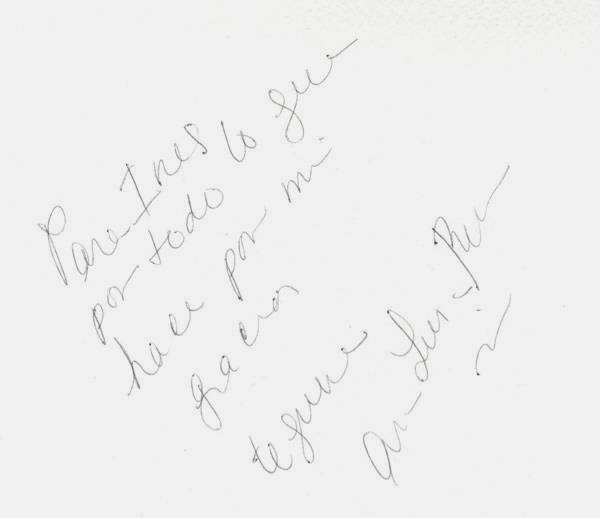 Para Ines
por todo lo que
hace por mi
gracias
te quiere